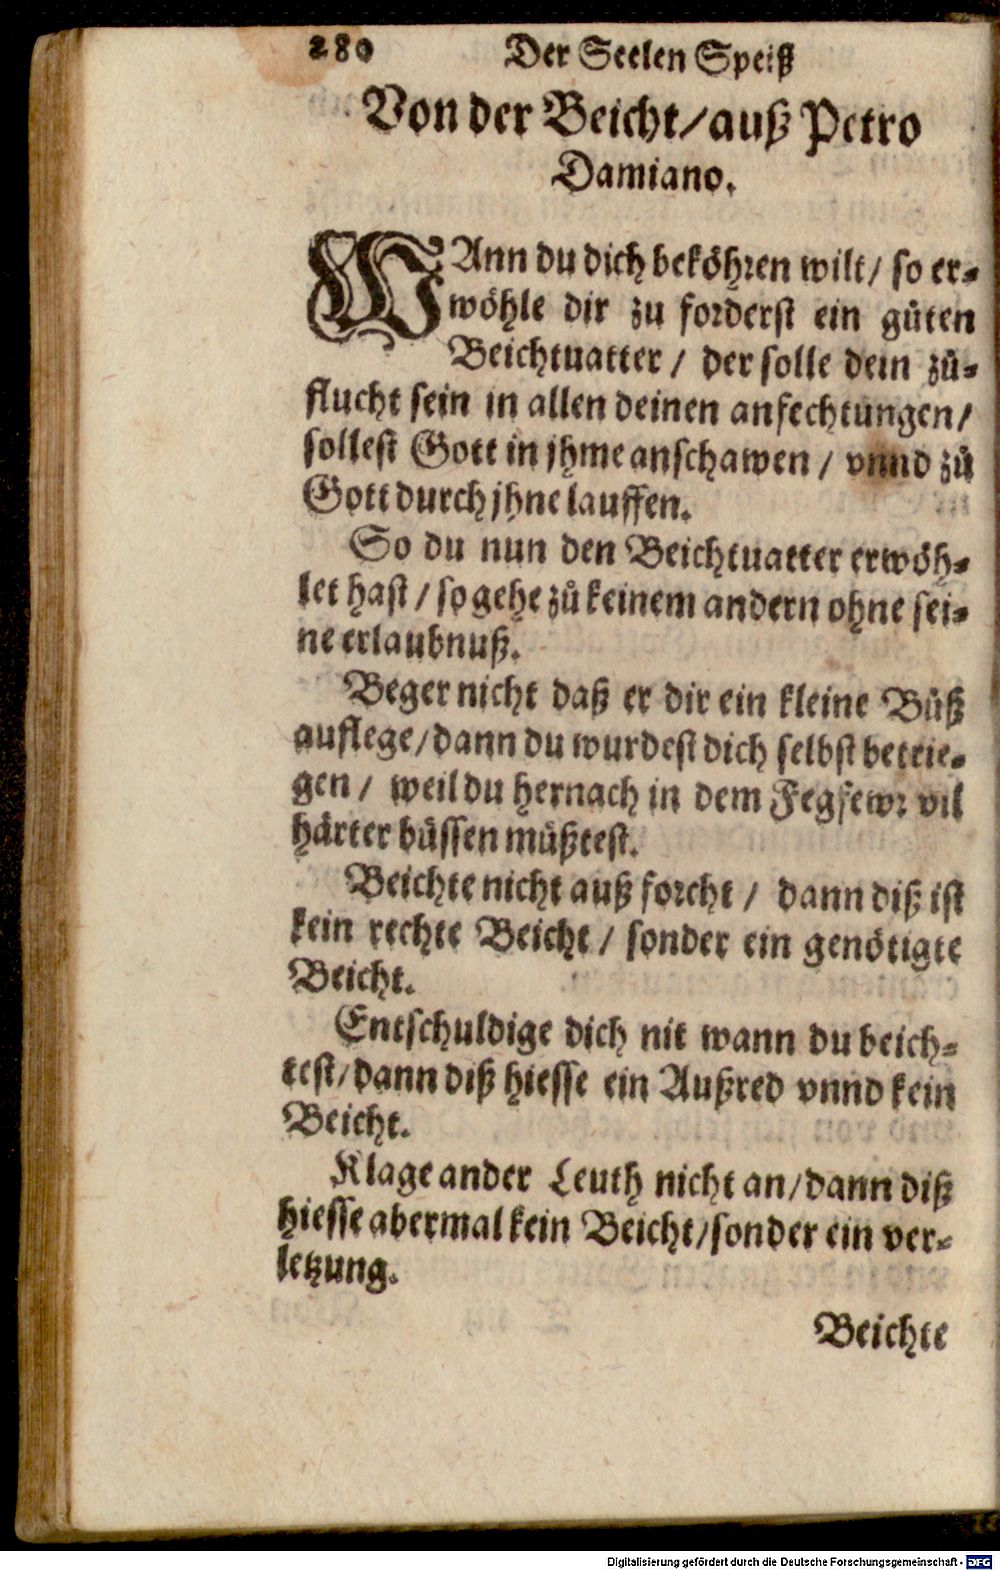 280 Der Seelen Speiß
Von der Beicht/auß Petro
Damiano.
WAnn du dich beköhren wilt/ so er⸗
wöhle dir zu forderst ein gůten
Beichtuatter / der solle dein zů⸗
flucht sein in allen deinen anfechtungen/
sollest Gott in jhme anschawen / vnnd zů
Gott durch jhne lauffen.
So du nun den Beichtuatter erwöh⸗
let hast / so gehe zů keinem andern ohne sei⸗
ne erlaubnuß.
Beger nicht daß er dir ein kleine Bůß
auflege/dann du wurdest dich selbst betrie⸗
gen / weil du hernach in dem Fegfewr vil
härter büssen müßtest.
Beichte nicht auß forcht / dann diß ist
kein rechte Beicht / sonder ein genötigte
Beicht.
Entschuldige dich nit wann du beich⸗
test/dann diß hiesse ein Außred vnnd kein
Beicht.
Klage ander Leuth nicht an/dann diß
hiesse abermal kein Beicht/sonder ein ver⸗
letzung.
Beichte
Digitalisierung gefördert durch die Deutsche Forschungsgemeinschaft - DFG